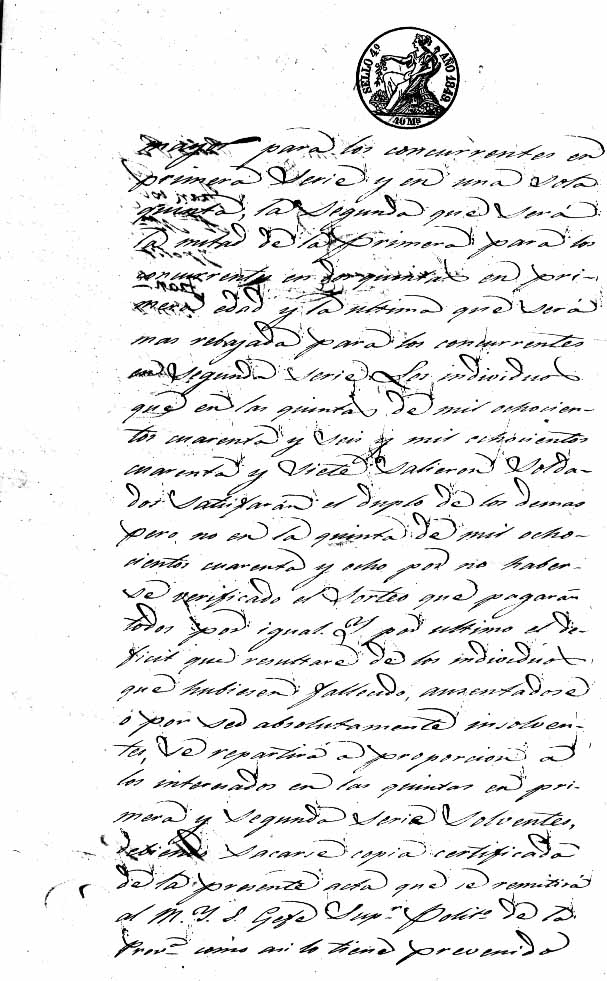 SELLO 4º AÑO 1848
40 Ms
para los concurrentes en
primera serie y en una sola
quinta, la segunda que será
la mitad de la primera para los
concurrents en dos quintas en pri-
mera edad y la ultima que será
mas rebajada para los concurrentes
en segunda serie. Los individuos
que en las quintas de mil ochocien-
tos cuarenta y seis y mil ochocientos
cuarenta y siete salieron solda-
dos satisfarán el duplo de los demas
pero no en la quinta de mil ocho-
cientos cuarenta y ocho por no haber-
se verificado el sorteo que pagarán
todos por igual. Y por ultimo el de-
ficit que resultare de los individuos
que hubiesen fallecido, ausentadose
ó por ser absolutamente insolven-
tes, se repartirá a proporcion á
los interesados en las quintas en pri-
mera y segunda serie solventes,
sacarse copia certificada
de la presente acta que se remitirá
al M. Y. S. Gefe Supr. Polico. de la
Prova. como asi lo tiene prevenido